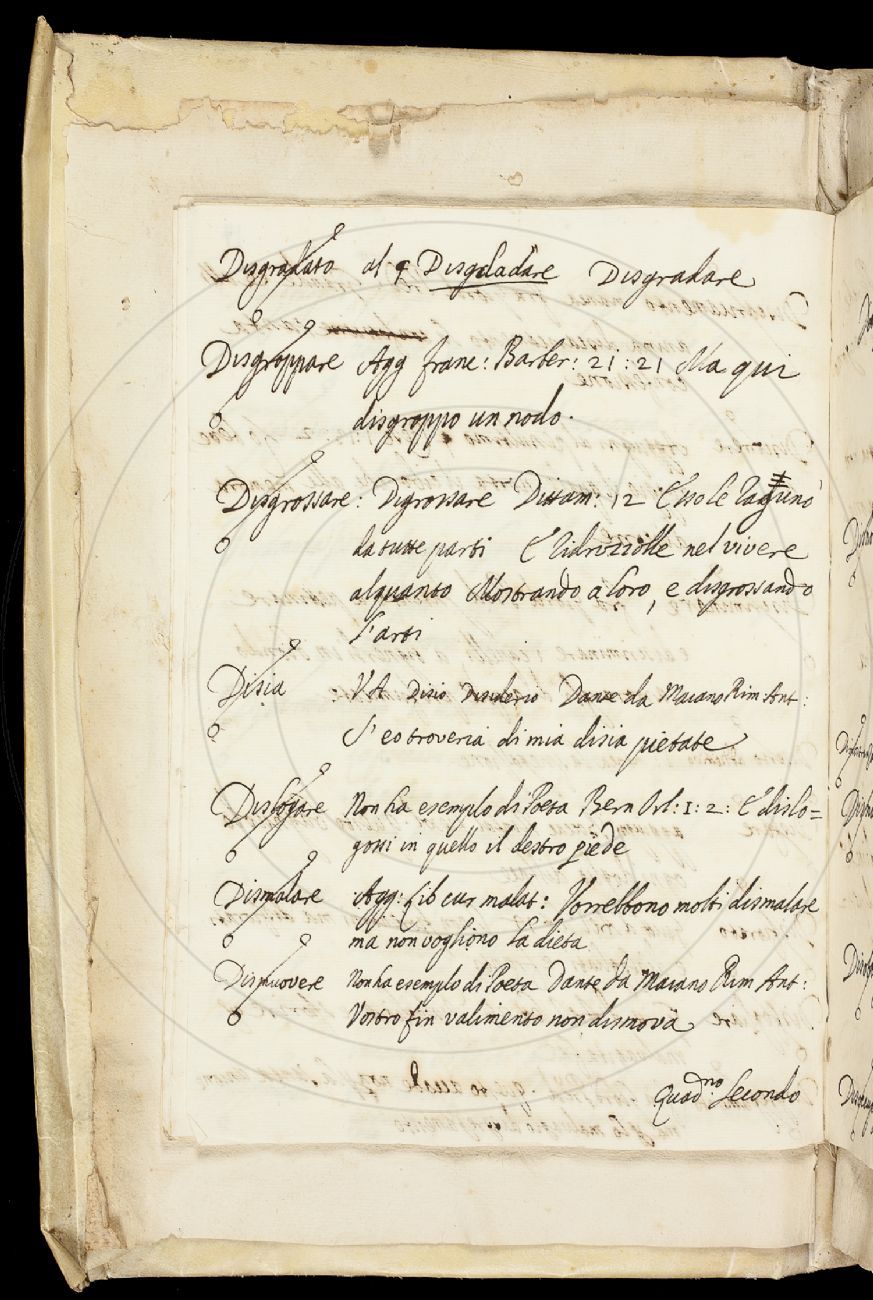 Disgradato al § Disgeladare Disgradare
Disgroppare Agg franc: Barber: 21:21 Ma qui
disgroppo un nodo.
Disgrossare: Digrossare Dittam: 12 E sì le ragunò
da tutte parti E lidrizzolle nel vivere
alquanto Mostrando a loro, e disgrossando
l'arti
Disia : VA Disio Desiderio Dante da Maiano Rim Ant:
S'eo troveria di mia disia pietate
Dislogare Non ha esemplo di Poeta Bern Orl: 1: 2: E dislo=
gossi in quello il destro piede
Dismalare Agg: Lib cur malat: Vorrebbono molti dismalare
ma non vogliono la dieta
Dismuovere Non ha esemplo di Poeta Dante da Maiano Rim Ant:
Vostro fin valimento non dismova
Quad.no Secondo